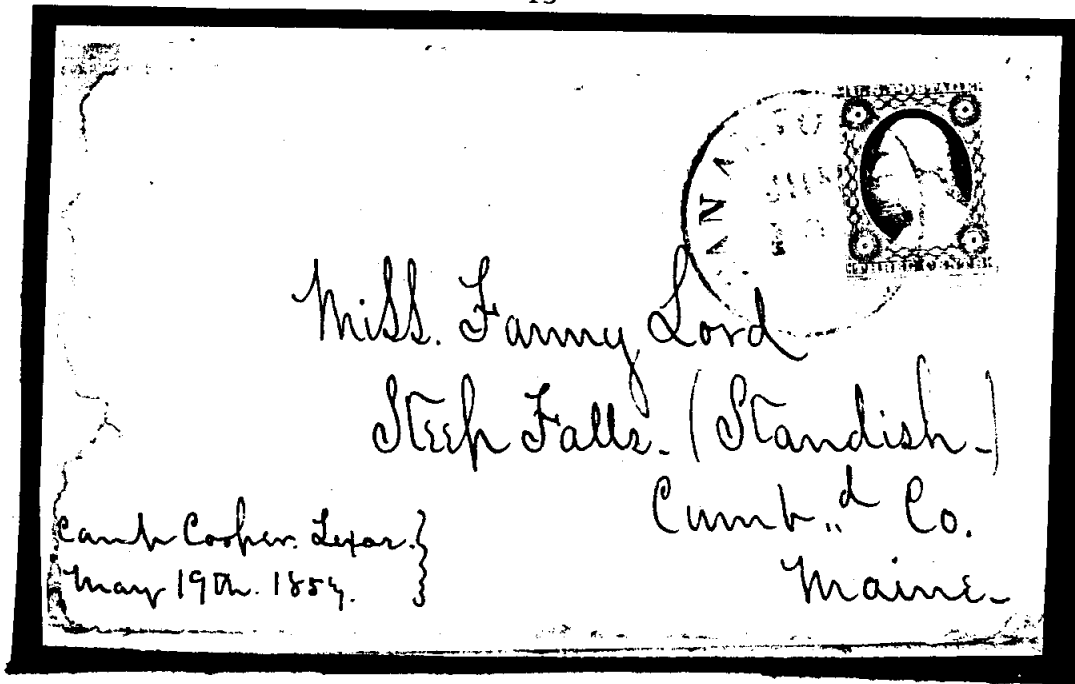 U.S. POSTAGE
THREE CENTS
Miss. Fanny Lord
Steep Falls. (Standish-)
Cumb,,d Co.
Maine-
Camp Cooper. Texas.
May 19th. 1859.